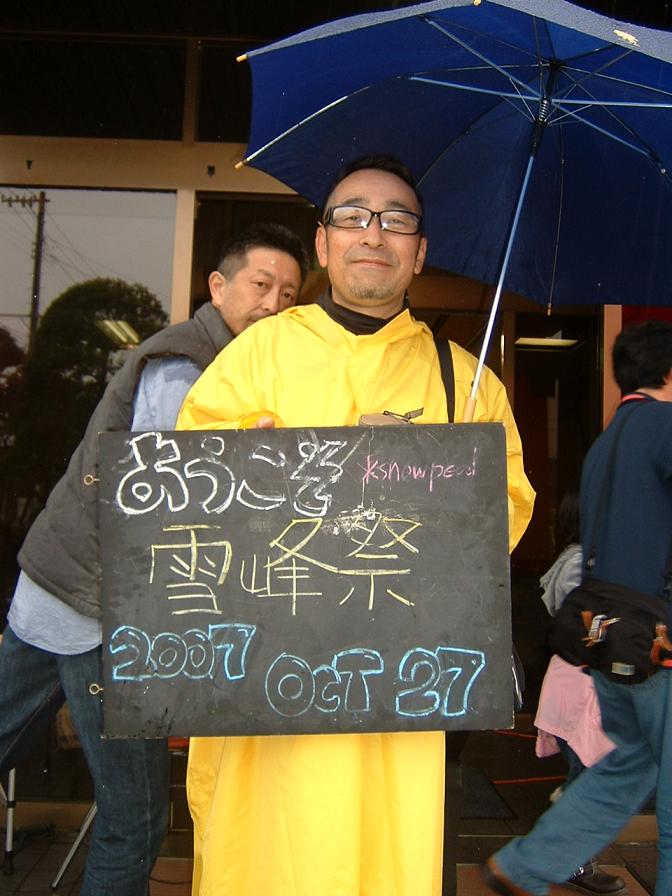 ようこそ *snowpeak
雪峰祭
2007 OCT 27